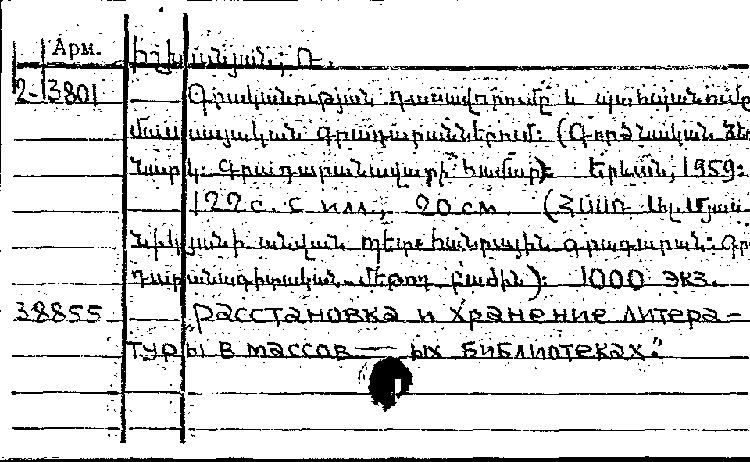 Арм. Իշխանյան, Ռ.
2-3801 Գրականության դասավորումը և պահպանումը
մասսայական գրադարաններում: (Գործնական ձե
նարկ: Գրադարանավարի համար): Երևան, 1959:
122 с. с илл., 20 см. (ՀՍՍՌ Ալ. Մյաս
նիկյանի անվան պետ. հանրային գրադարան: Գր
դարանագիտական մեթոդ. բաժին): 1000 экз.
38855 „Расстановка и хранение литера-
туры в массов — ых библиотеках."